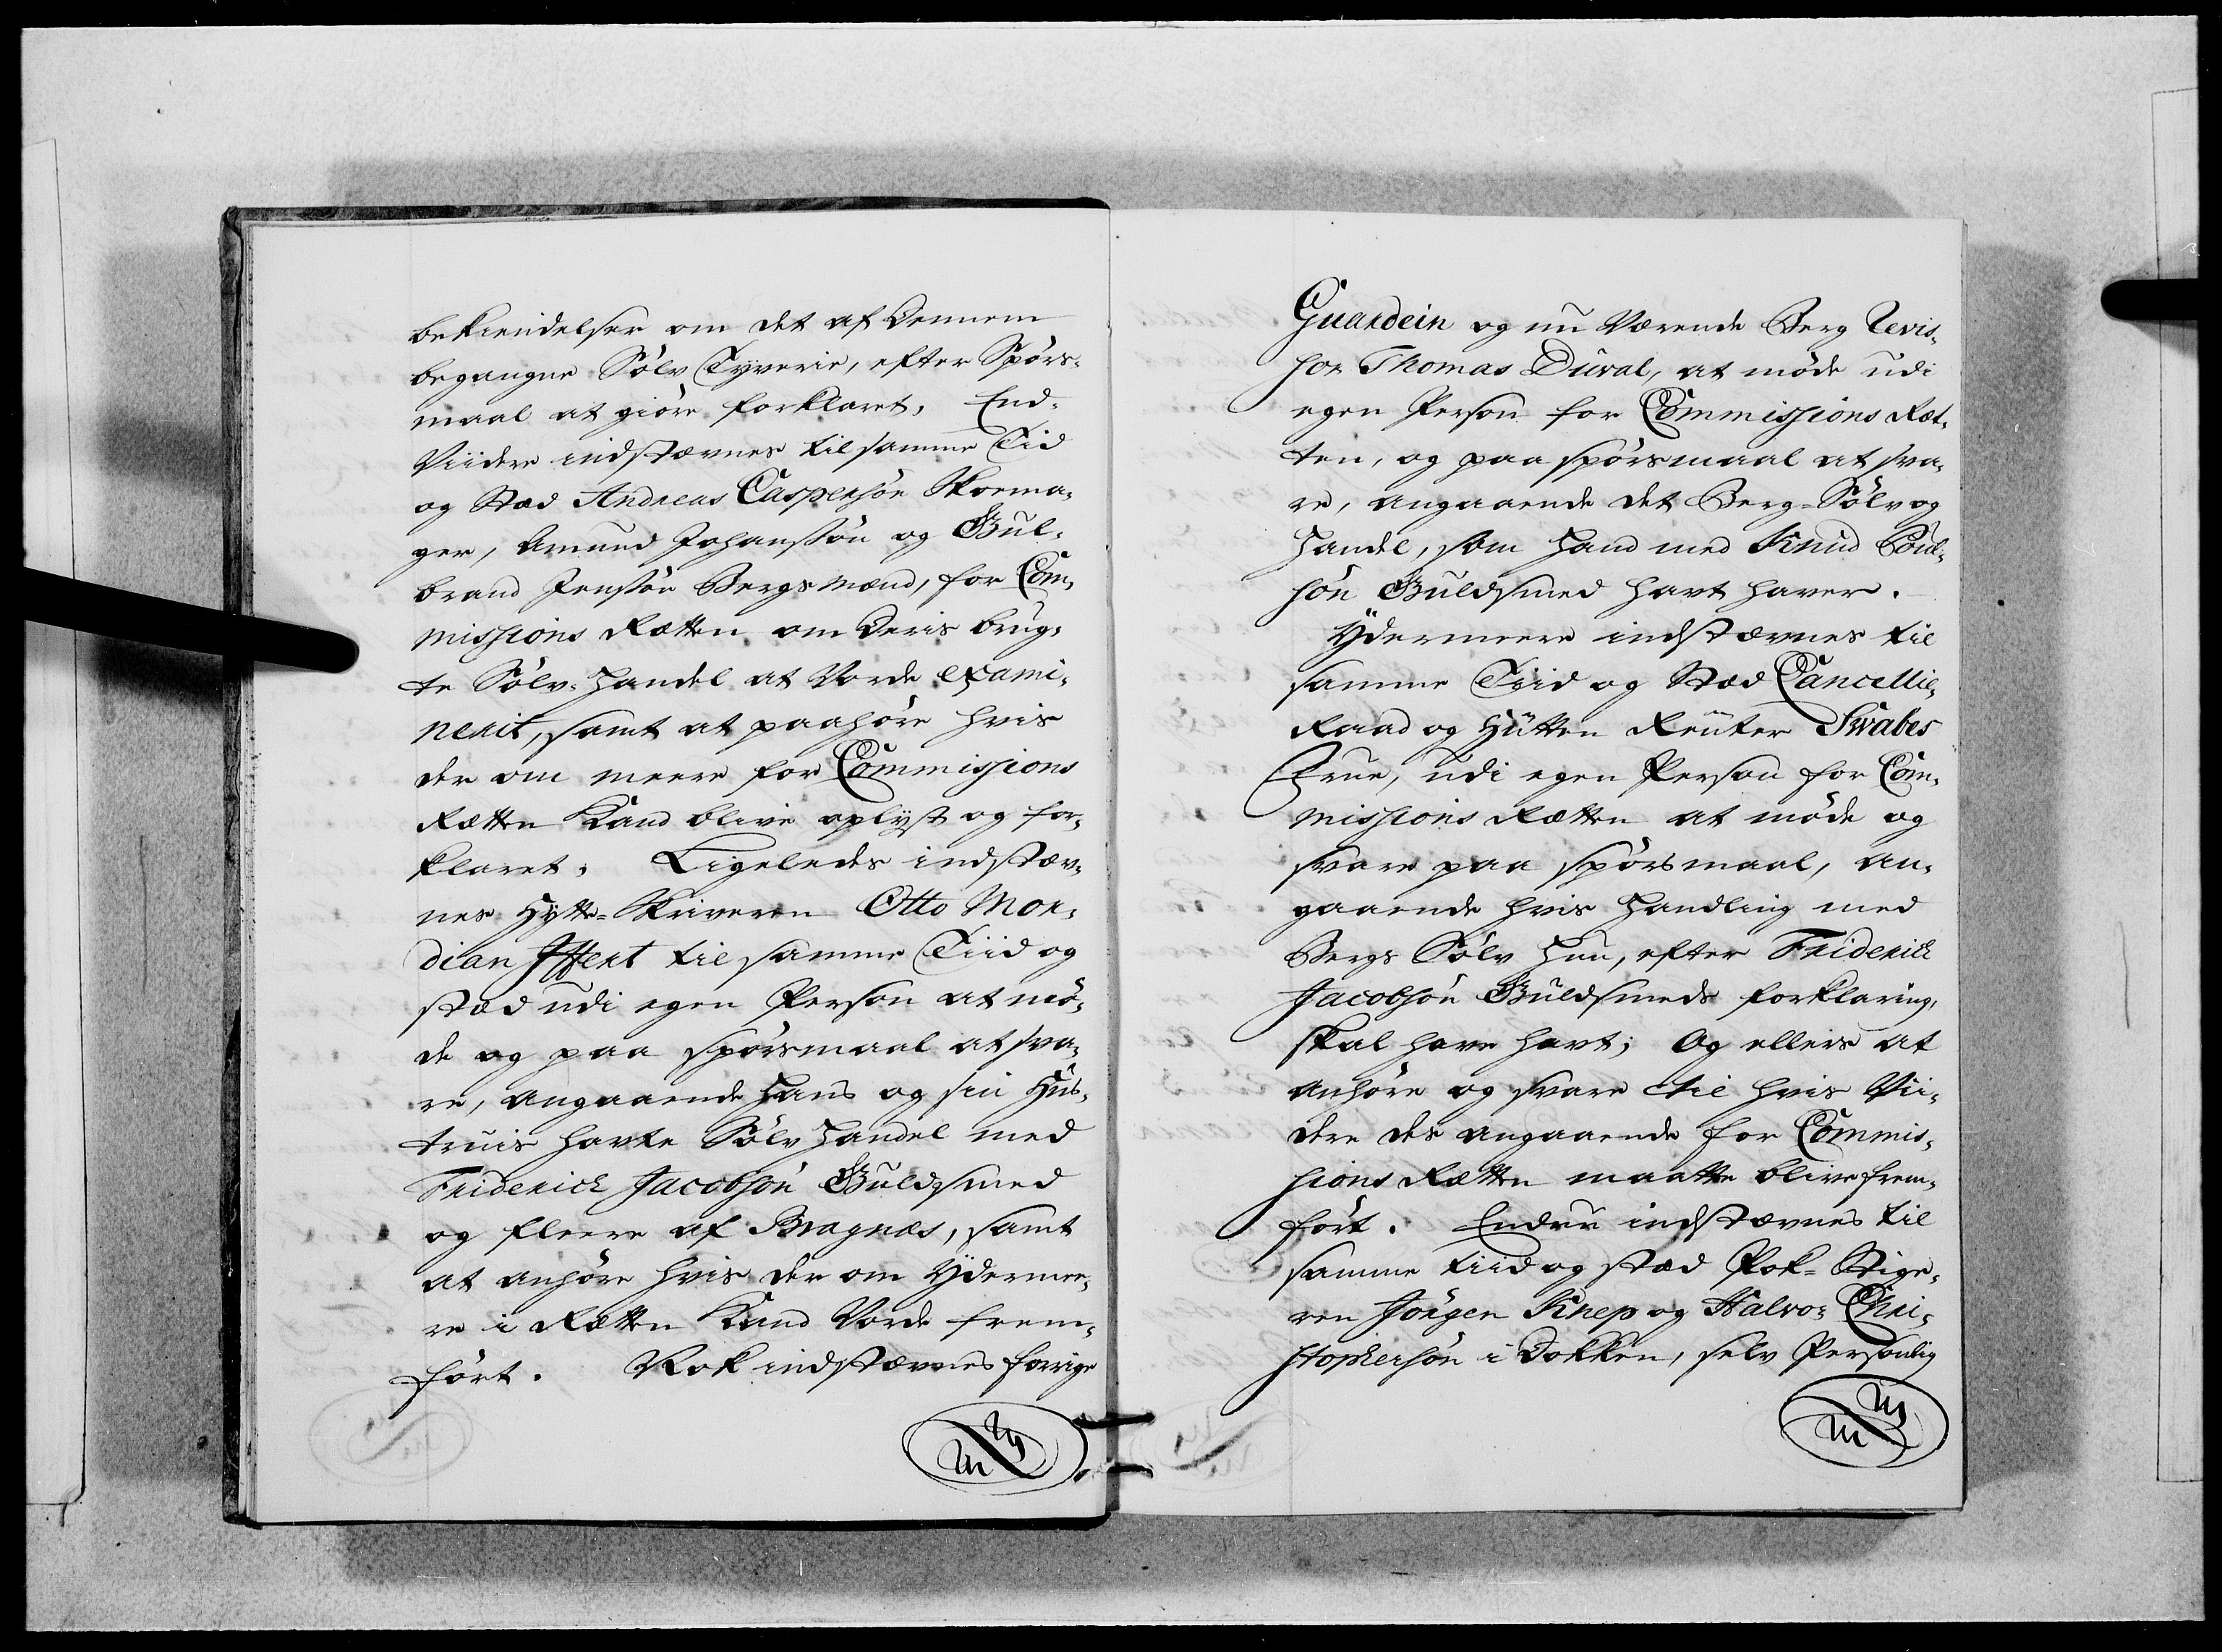 bekiendelser om det af Dennem
begangne Sølv Tyverie, efter Spörs-
maal at giöre forklaret, End-
Viidere indstævnes til samme Tid
og Stæd Andreas Caspersön Skoema-
ger, Amund Johanssön og Gul-
brand Jenssön Bergsmænd, for Com-
missions Rætten om Deris brug-
te Sölv-Handel at Vorde exami-
nerit, samt at paahöre hvis
der om meere for Commissions
Rætten Kand blive oplyst og for-
klaret, Ligeledes indstæv-
nes Hytte-Skriveren Otto Mor-
dian Iffert til samme Tiid og
stæd udi egen Person at mö-
de og paa spörsmaal at sva-
re, angaaende Hans og sin Hus-
truis havte Sölv Handel med
Friderich Jacobsön Guldsmed
og fleere af Bragnæs, samt
at anhöre hvis der om Ydermee-
re i Rætten Kand Vorde frem-
fört. Nok indstævnes forrige
Guardein og nu Værende Berg Revis-
sor Thomas Duval, at möde udi
egen Person for Commissions Ræt-
ten, og paa spörsmaal at sva-
re, angaaende det Berg-Sölv og
Handel, som Hand med Knud Poul-
sön Guldsmed havt haver.
Ydermeere indstævnes til
samme Tiid og Stæd Cancellie-
Raad og Hütten Reüter Swabes
Frue, udi egen Person for Com-
missions Rætten at möde og
svare paa spörsmaal, an-
gaaende hvis Handling med
Bergs Sölv Hun, efter Friderich
Jacobsön Guldsmeds forklaring,
skal have havt; Og ellers at
anhöre og svare til hvis Vii-
dere des angaaende for Commis-
sions Rætten maatte blive frem-
fört. Endnu indstævnes til
samme tiid og stæd Pok-Stige-
ren Jörgen Knep og Halvor Chri-
stophersön i Dokken, selv Personlig